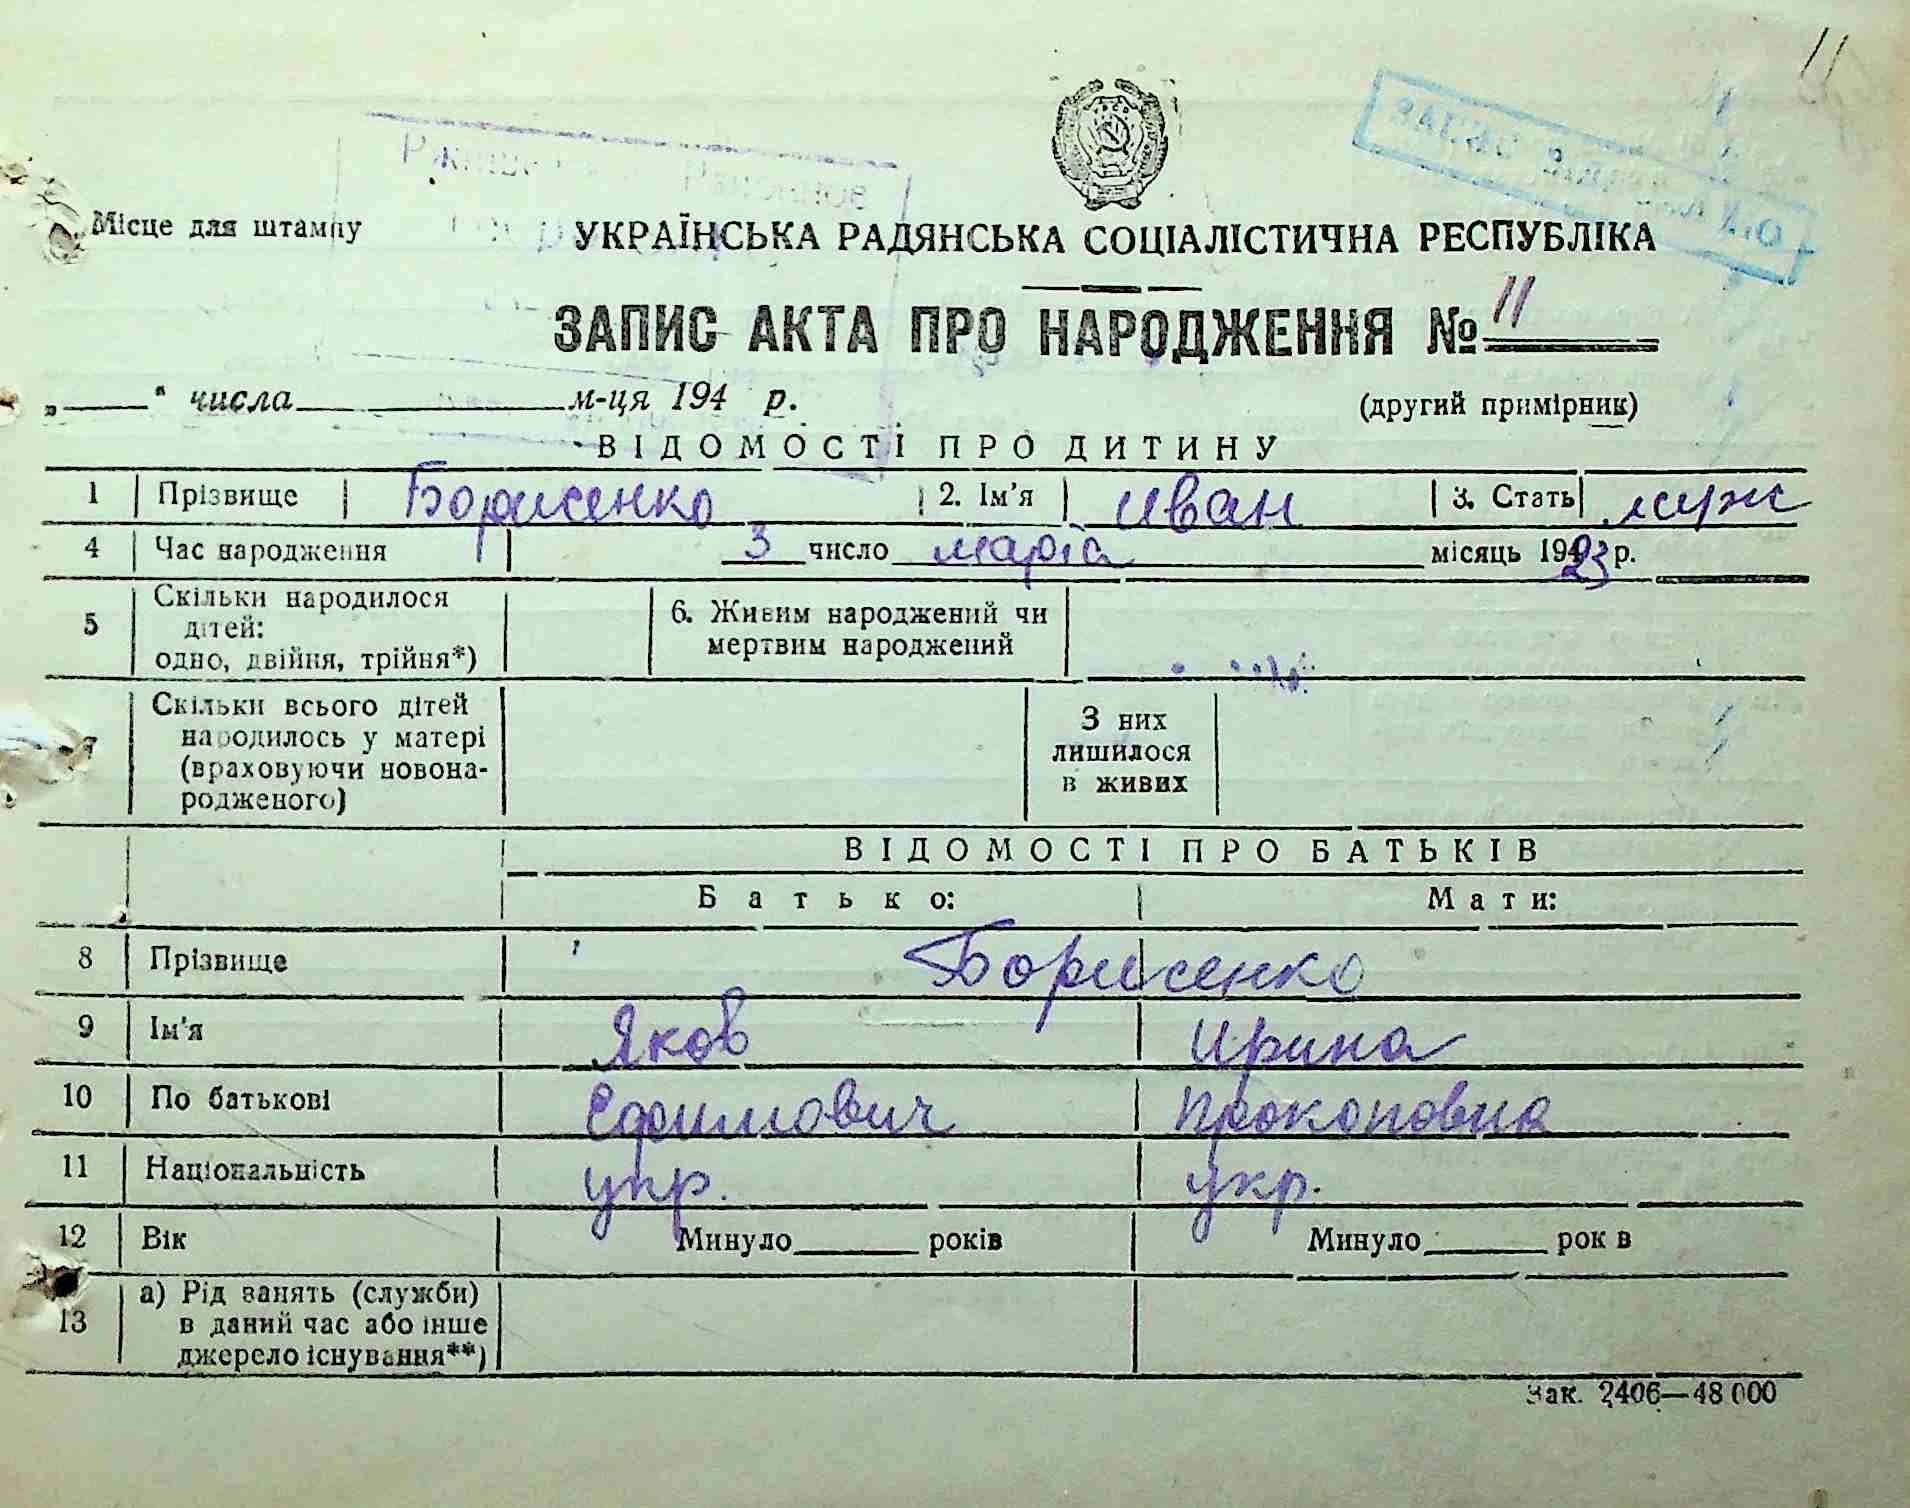 11
Місце для штампу
УКРАЇНСЬКА РАДЯНСЬКА СОЦІАЛІСТИЧНА РЕСПУБЛІКА
ЗАПИС АКТА ПРО НАРОДЖЕННЯ № 11
„ " числа м-ця 194 р.
(другий примірник)
ВІДОМОСТІ ПРО ДИТИНУ
1 Прізвище Борисенко 2. Ім'я Иван 3. Стать муж
4 Час народження 3 число марта місяць 1923 р.
5 Скільки народилося дітей: одно, двійня, трійня*) 6. Живим народжений чи мертвим народжений
7 Скільки всього дітей народилось у матері (враховуючи новонародженого) З них лишилося в живих
ВІДОМОСТІ ПРО БАТЬКІВ
Батько: Мати:
8 Прізвище Борисенко
9 Ім'я Яков Ирина
10 По батькові Ефимович Прокоповна
11 Національність укр. укр.
12 Вік Минуло років Минуло рок в
13 а) Рід занять (служби) в даний час або інше джерело існування**)
Зак. 2406—48 000